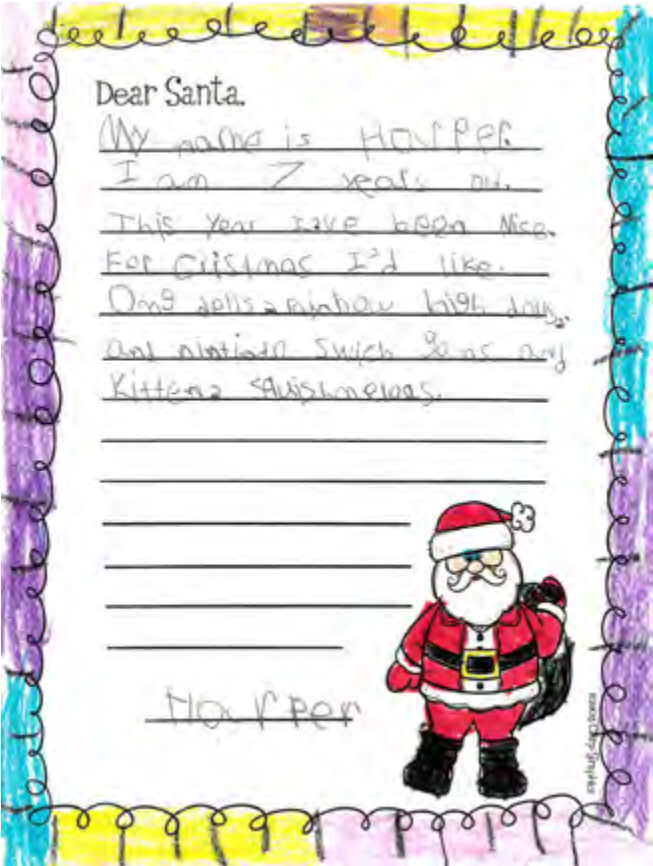 Dear Santa,
My name is Harper.
I am 7 years old.
This Year I ave been Nice.
For Cristmas I'd like.
Omg dolls rainbow high dolls.
and nintindo Swich and
Kittens squishmeloas.
Harper